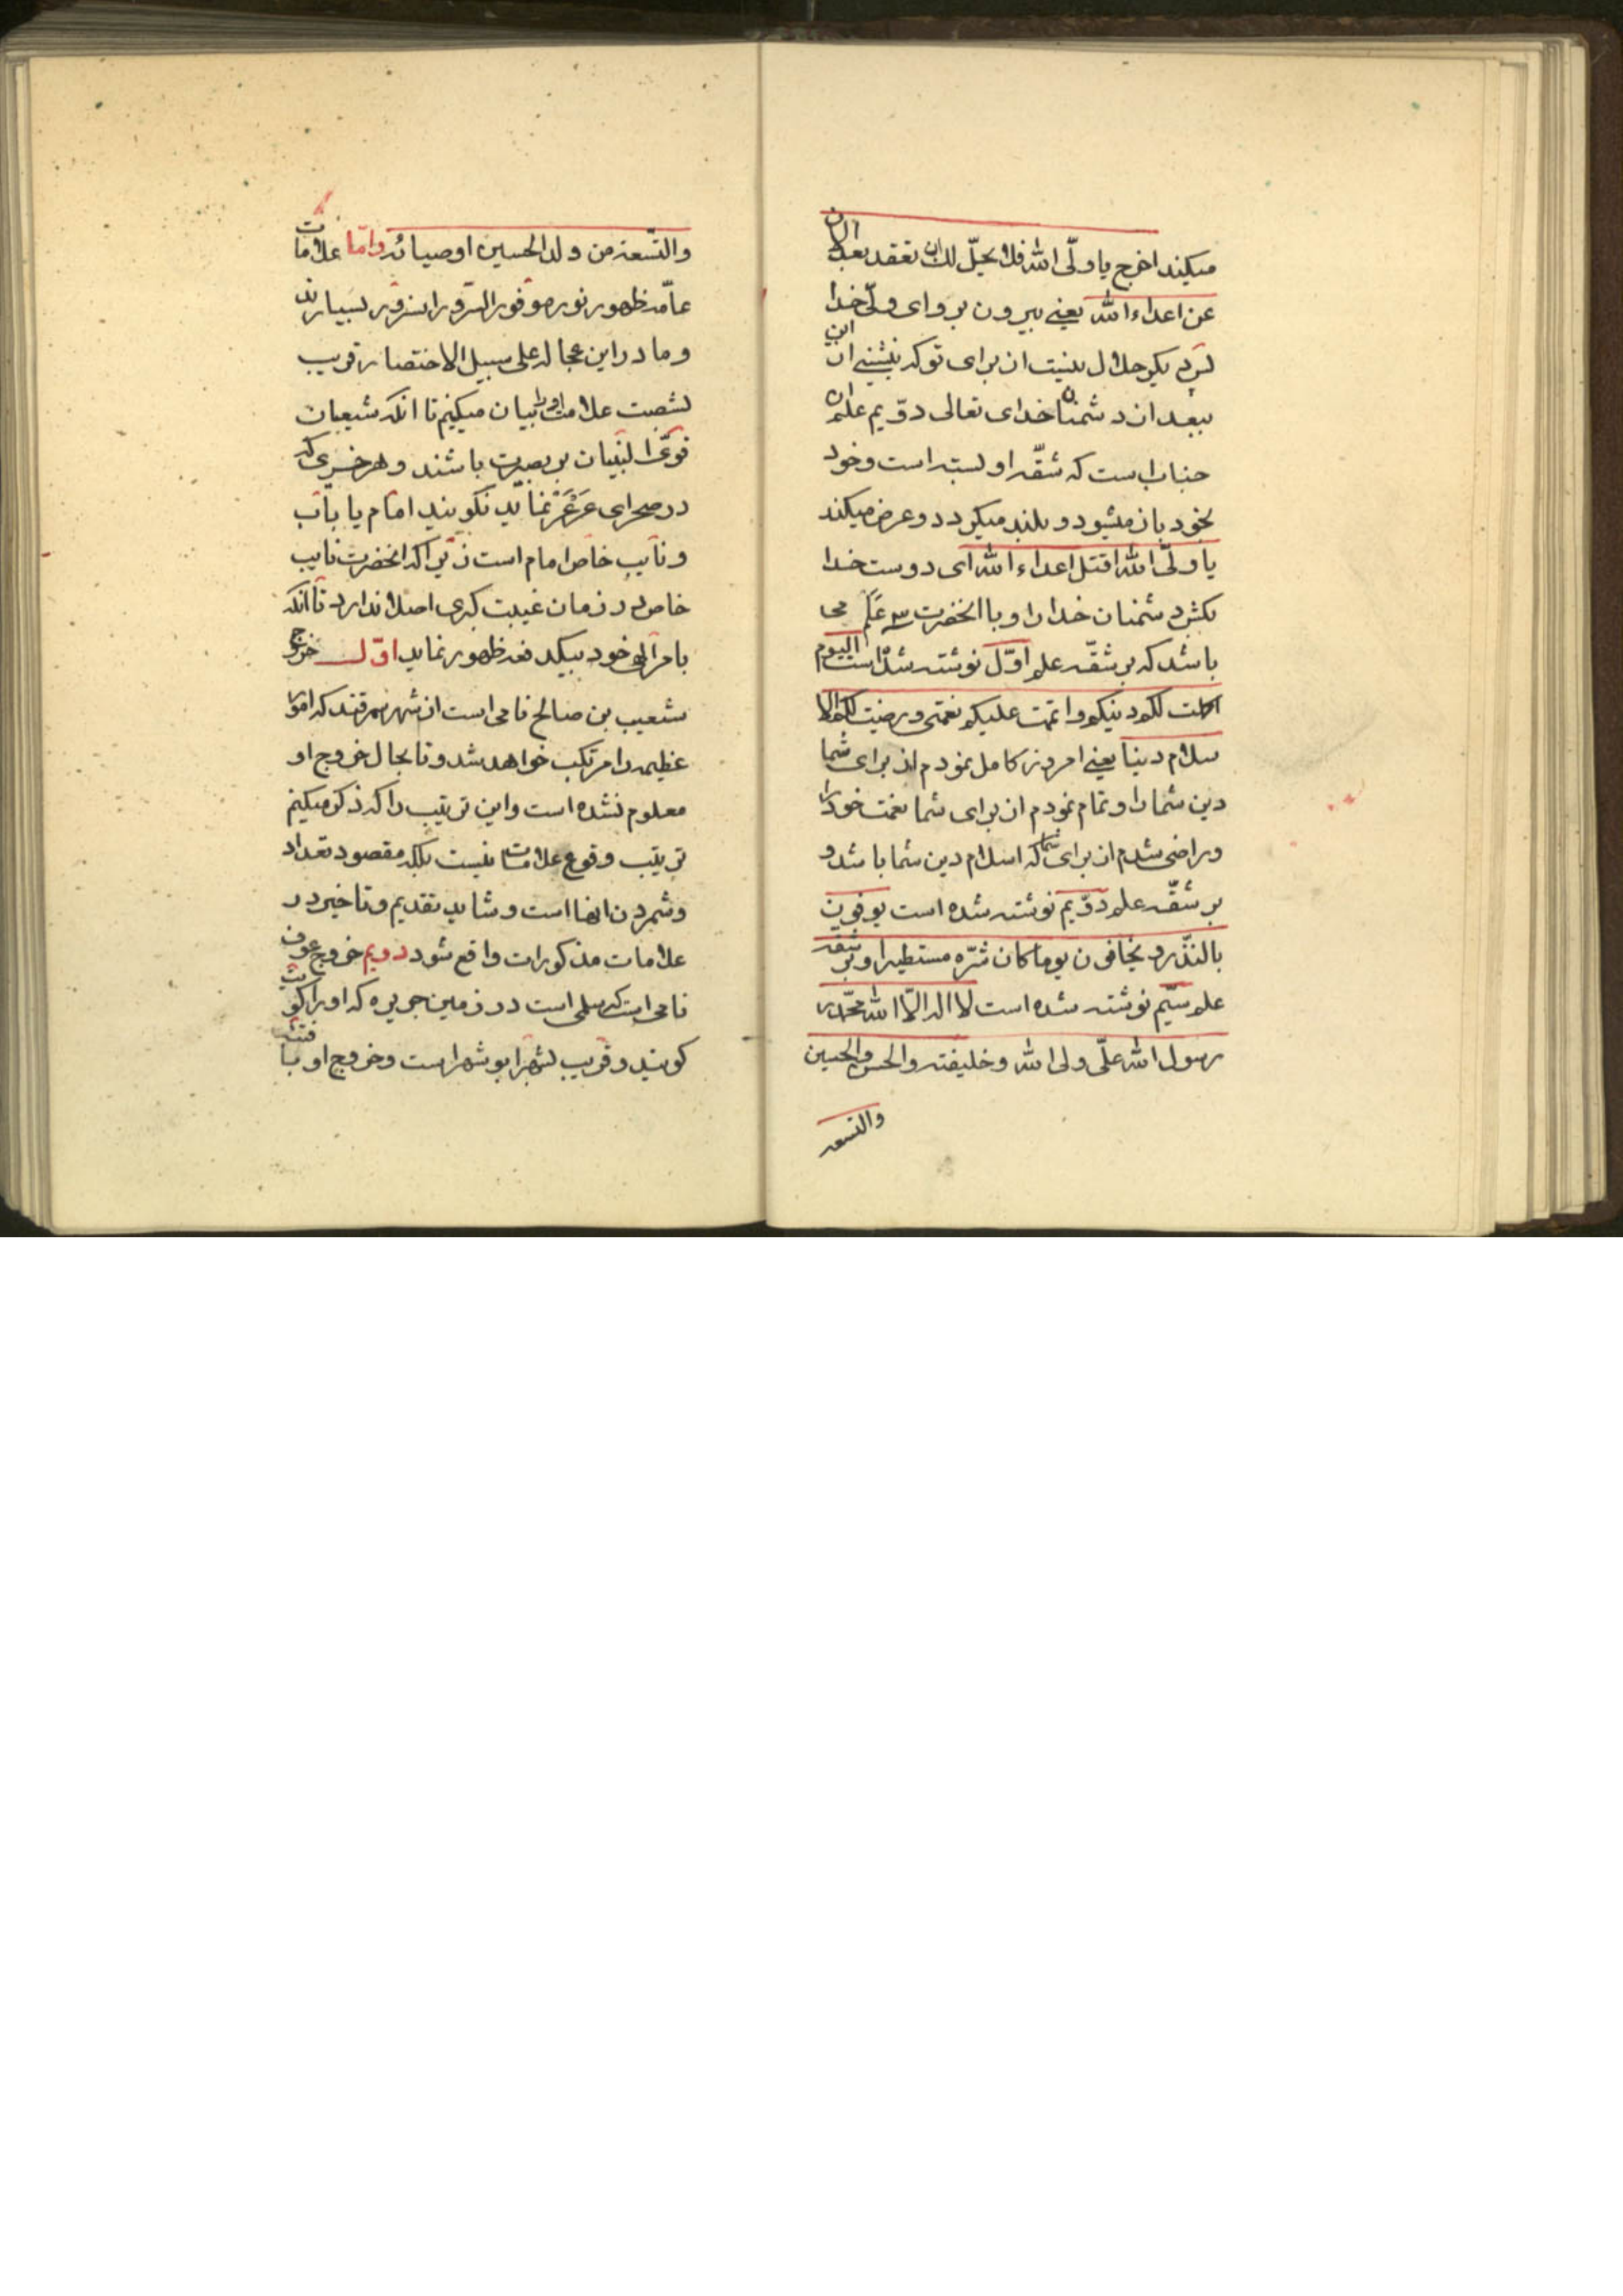 میکند اخرج یا ولّی الله فلا یحلّ لک ان تقعد بعد الان
عن اعداء الله یعنی بیرون برو ای ولّی خدا
پس دیگر حلال نیست از برای تو که بنشینی از این
ببعد از دشمنان خدای تعالی دوّیم علم ان
جناب است که شقّه او بسته است و خود
بخود باز میشود و بلند میکردد و عرض میکند
یا ولّی الله اقتل اعداء الله ای دوست خدا
بکش دشمنان خدا را و با انحضرت سه عَلَم می
باشد که بر شقّه علم اوّل نوشته شده است الیوم
اکملت لکم دینکم و اتممت علیکم نعمتی و رضیت لکم الا
سلام دینا یعنی امروز کامل نمودم از برای شما
دین شما را و تمام نمودم از برای شما نعمت خود را
و راضی شدم از برای شما که اسلام دین شما باشد و
بر شقّه علم دوّیم نوشته شده است یوفون
بالنّذر و یخافون یوما کان شرّه مستطیرا و بر شقه
علم سیّم نوشته شده است لا اله الّا الله محمّد
رسول الله علّی ولی الله و خلیفته و الحسن و الحسین
والتسعه
والتّسعة من ولد الحسین اوصیائه و امّا علامات
عامّه ظهور نور موفور السّرور انسرور بسیارند
و ما در این عجاله علی سبیل الاختصار قریب
بشصت علامت او را بیان میکنیم تا انکه شیعیان
قوّی البنیان بر بصیرت باشند و هر خری که
در صحرای عَرعَر نماید نکویند امام یا باب
و نایب خاص امام است زیرا که انحضرت نایب
خاص در زمان غیبت کبری اصلا ندارد تا انکه
بامر الهی خود بیکدفعه ظهور نماید اوّل خروج
شعیب بن صالح نامی است از شهر سمرقند که امور
عظیمه را مرتکب خواهد شد و تا بحال خروج او
معلوم نشده است و این ترتیب را که ذکر میکنم
ترتیب وقوع علامات نیست بلکه مقصود تعداد
و شمردن انها است و شاید تقدیم و تاخیر در
علامات مذکورات واقع شود دویم خروج عوف
نامی است که سلمی است در زمین جزیره که او را کویت
کویند و قریب بشهر ابوشهر است و خروج او با فتنه